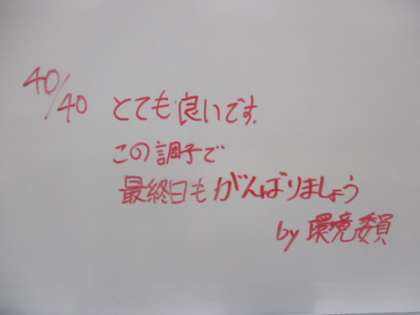 40/40 とても良いです。
この調子で
最終日もがんばりましょう
by 環境委員